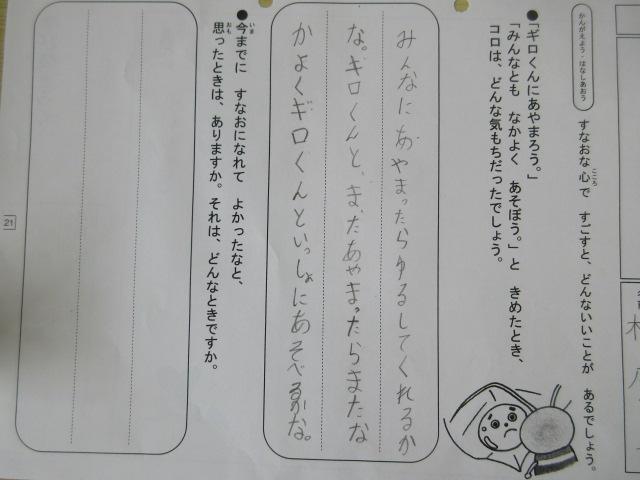 かんがえよう・はなしあおう
すなおな心で すごすと、どんないいことが あるでしょう。
こころ
●「ギロくんにあやまろう。」
「みんなとも なかよく あそぼう。」と きめたとき、
コロは、どんな気もちだったでしょう。
みんなにあやまったらゆるしてくれるか
な。ギロくんと、またあやまったらまたな
かよくギロくんといっしょにあそべるかな。
●今までに すなおになれて よかったなと、
いま
思ったときは、ありますか。それは、どんなときですか。
おも
21